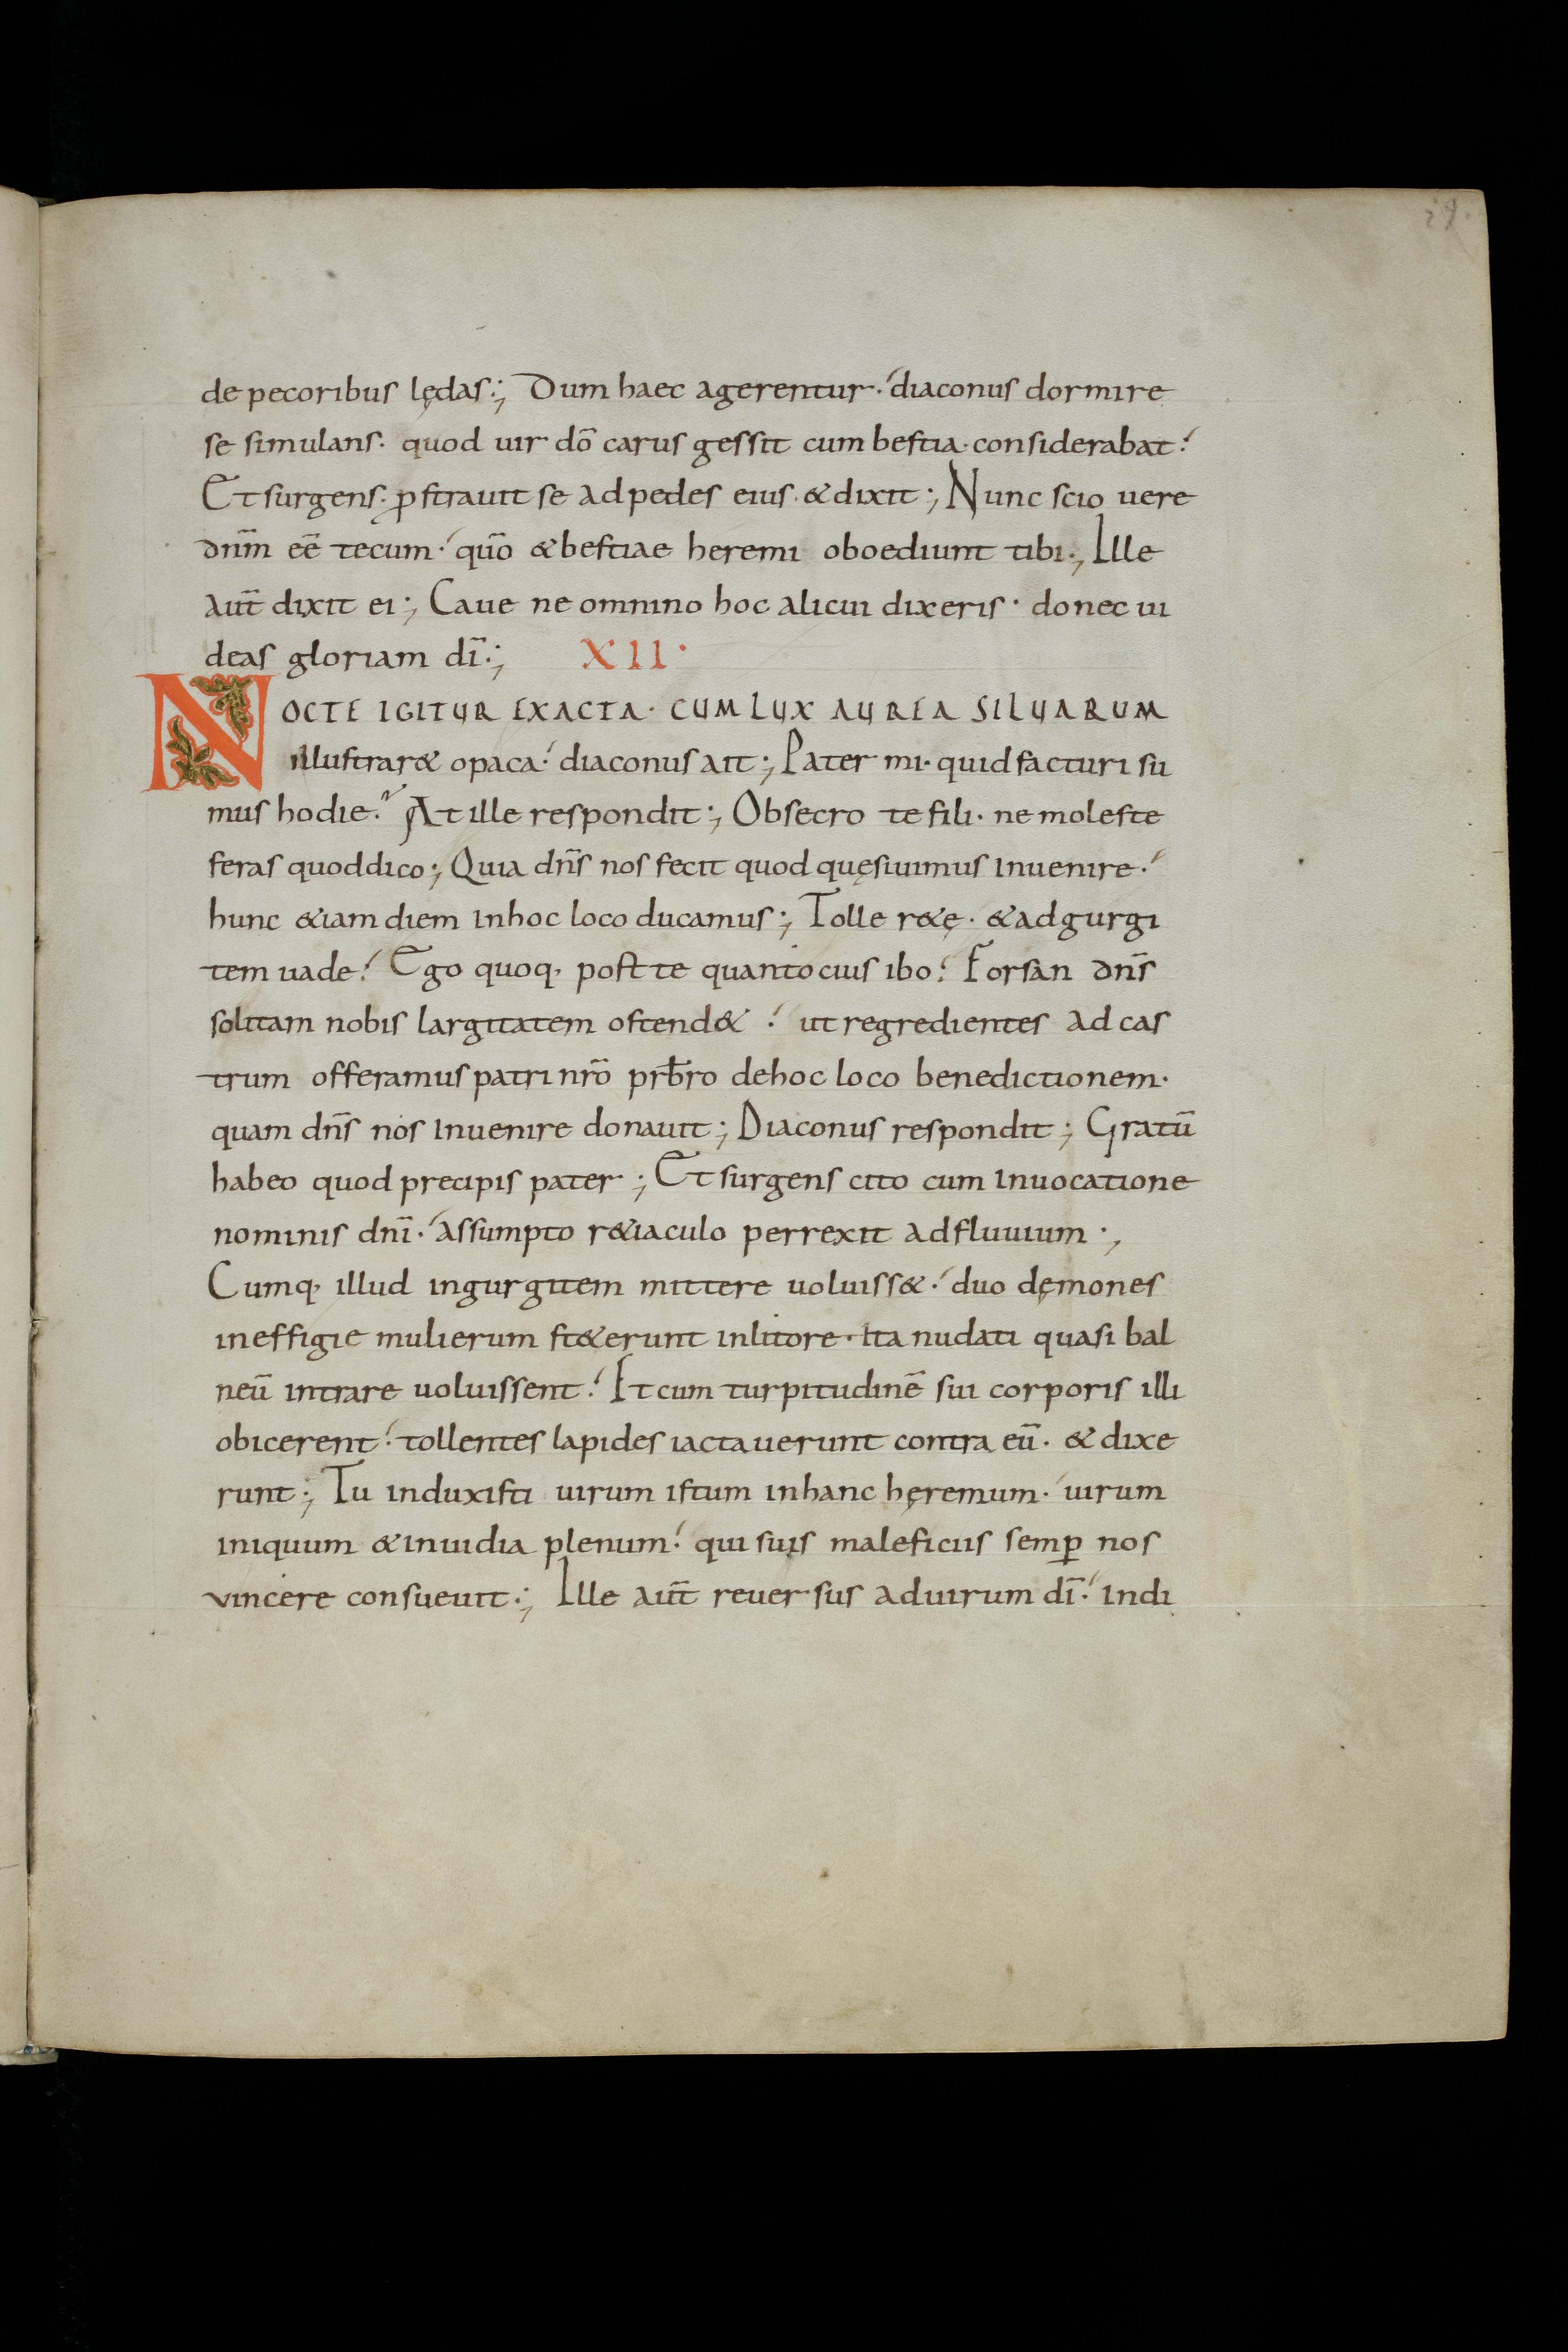 29
de pecoribus lędas·; Dum haec agerentur· diaconus dormire
se simulans· quod uir dō carus gessit cum bestia· considerabat·
Et surgens· ꝓstrauit se ad pedes eius· & dixit·; Nunc scio uere
dn̄m eē tecum· qūo & bestiae heremi oboediunt tibi·; Ille
aut̄ dixit ei·; Caue ne omnino hoc alicui dixeris· donec ui
deas gloriam dī·; XII·
NOCTE IGITUR EXACTA· CUM LUX AUREA SILUARUM
illustrar& opaca· diaconus ait·; Pater mi· quid facturi su
mus hodie? At ille respondit·; Obsecro te fili· ne moleste
feras quod dico·; Quia dn̄s nos fecit quod quęsiuimus inuenire·
hunc &iam diem in hoc loco ducamus·; Tolle r&ę· & ad gurgi
tem uade· Ego quoq· post te quantocius ibo· Forsan dn̄s
solitam nobis largitatem ostend& · ut regredientes ad cas
trum offeramus patri nr̄o prb̄ro de hoc loco benedictionem·
quam dn̄s nos inuenire donauit·; Diaconus respondit·; Gratū
habeo quod precipis pater·; Et surgens cito cum inuocatione
nominis dn̄i· assumpto r&iaculo perrexit ad fluuium·;
Cumq· illud in gurgitem mittere uoluiss&· duo dęmones
in effigie mulierum st&erunt in litore· ita nudati quasi bal
neū intrare uoluissent· Et cum turpitudinē sui corporis illi
obicerent· tollentes lapides iactauerunt contra eū· & dixe
runt·; Tu induxisti uirum istum in hanc hęremum· uirum
iniquum & inuidia plenum· qui suis maleficiis semꝑ nos
vincere consueuit·; Ille aut̄ reuersus ad uirum dī· indi